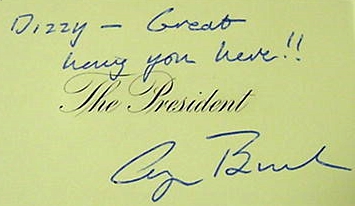 Dizzy – Great
having you here!!
The President
G Bush